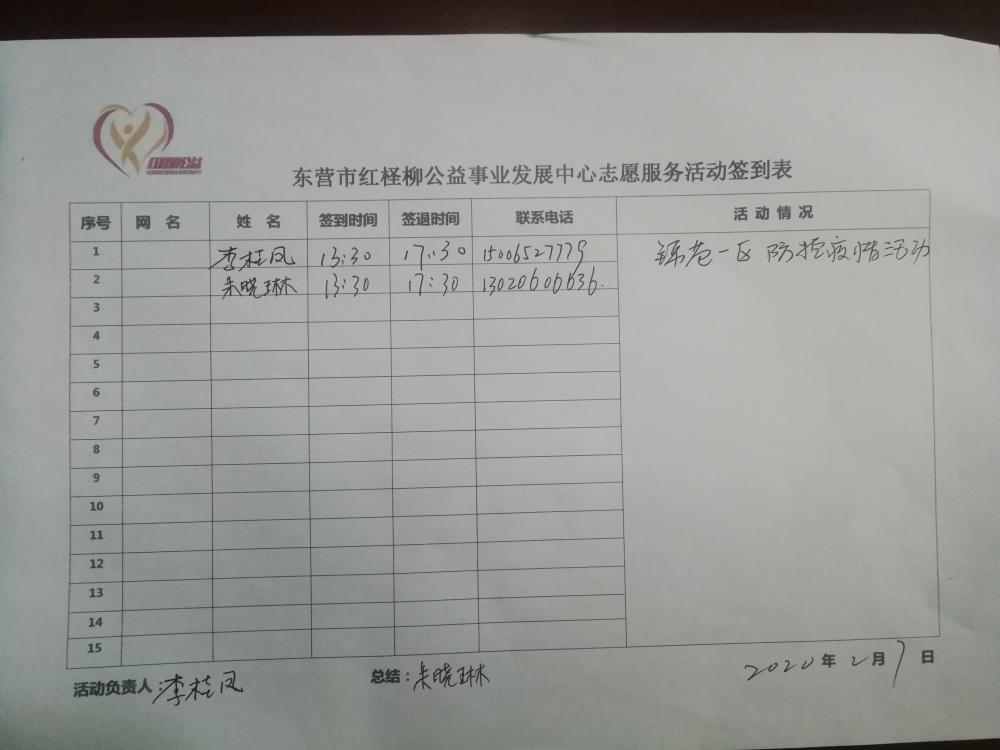 红柽柳公益
东营市红柽柳公益事业发展中心志愿服务活动签到表
序号 网名 姓名 签到时间 签退时间 联系电话 活动情况
1 李桂凤 13:30 17:30 15006527779 锦苑一区防控疫情活动
2 朱晓琳 13:30 17:30 13020606636.
3
4
5
6
7
8
9
10
11
12
13
14
15
活动负责人 李桂凤 总结:朱晓琳 2020年2月7日